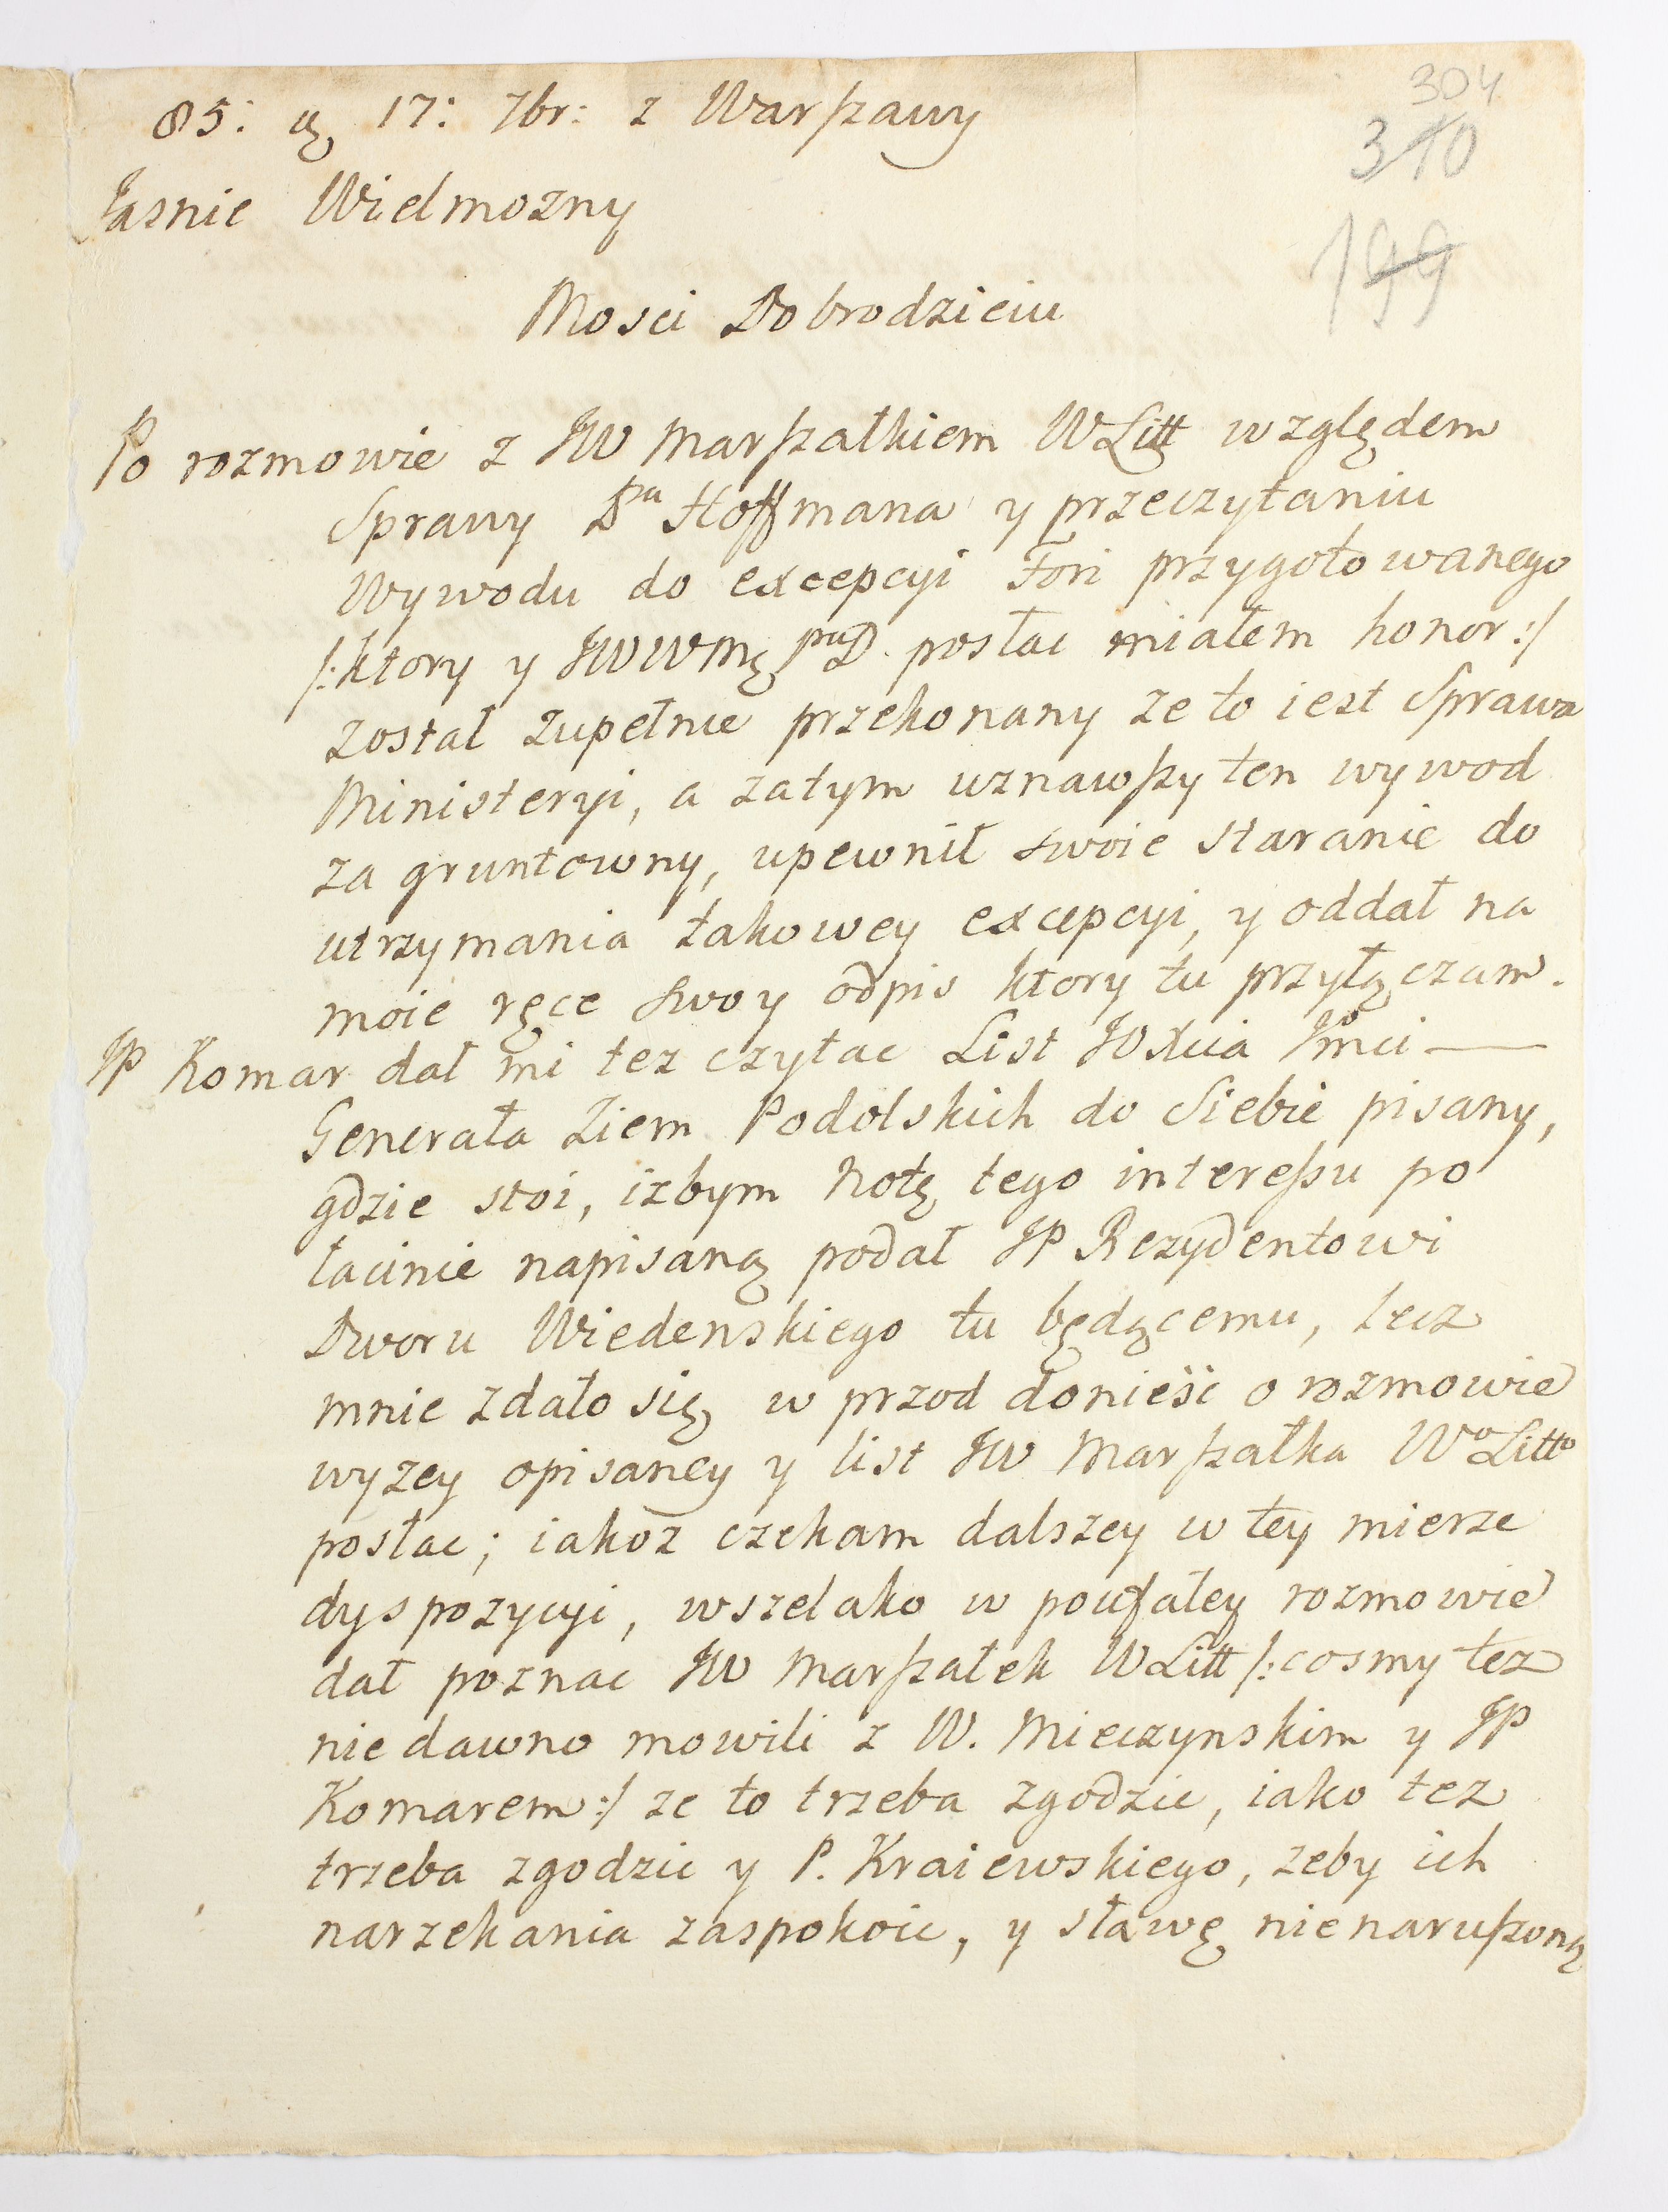 85: ą 17: 7br: z Warszawy
304
310
199
Jasnie Wielmozny
Mosci Dobrodzieiu
Po rozmowie z JW Marszałkiem WLitt względem
Sprawy Dra Hoffmana y przeczytaniu
Wywodu do excepcyi Fori przygotowanego
/:ktory y JWWMę PnD. posłac miałem honor:/
został zupełnie przekonany ze to iest Sprawa
Ministeryi, a zatym uznawszy ten wywod
za gruntowny, upewnił swoie staranie do
utrzymania takowey excepcyi, y oddał na
moie ręce swoy odpis ktory tu przyłączam.
JP Komar dał mi tez czytac List JOXcia Jmci —
Generała Ziem Podolskich do Siebie pisany,
gdzie stoi, izbym Notę tego interessu po
łacinie napisaną podał JP Rezydentowi
Dworu Wiedenskiego tu będącemu, lecz
mnie zdało się w przod donieść o rozmowie
wyzey opisaney y list JW Marszałka Wo Litto
posłac; iakoz czekam dalszey w tey mierze
dyspozycyi, wszelako w poufałey rozmowie
dał poznac JW Marszałek WLitt /:cosmy tez
niedawno mowili z W. Mieczynskim y JP
Komarem:/ ze to trzeba zgodzic, iako tez
trzeba zgodzic y P. Kraiewskiego, zeby ich
narzekania zaspokoic, y sławę nienaruszoną